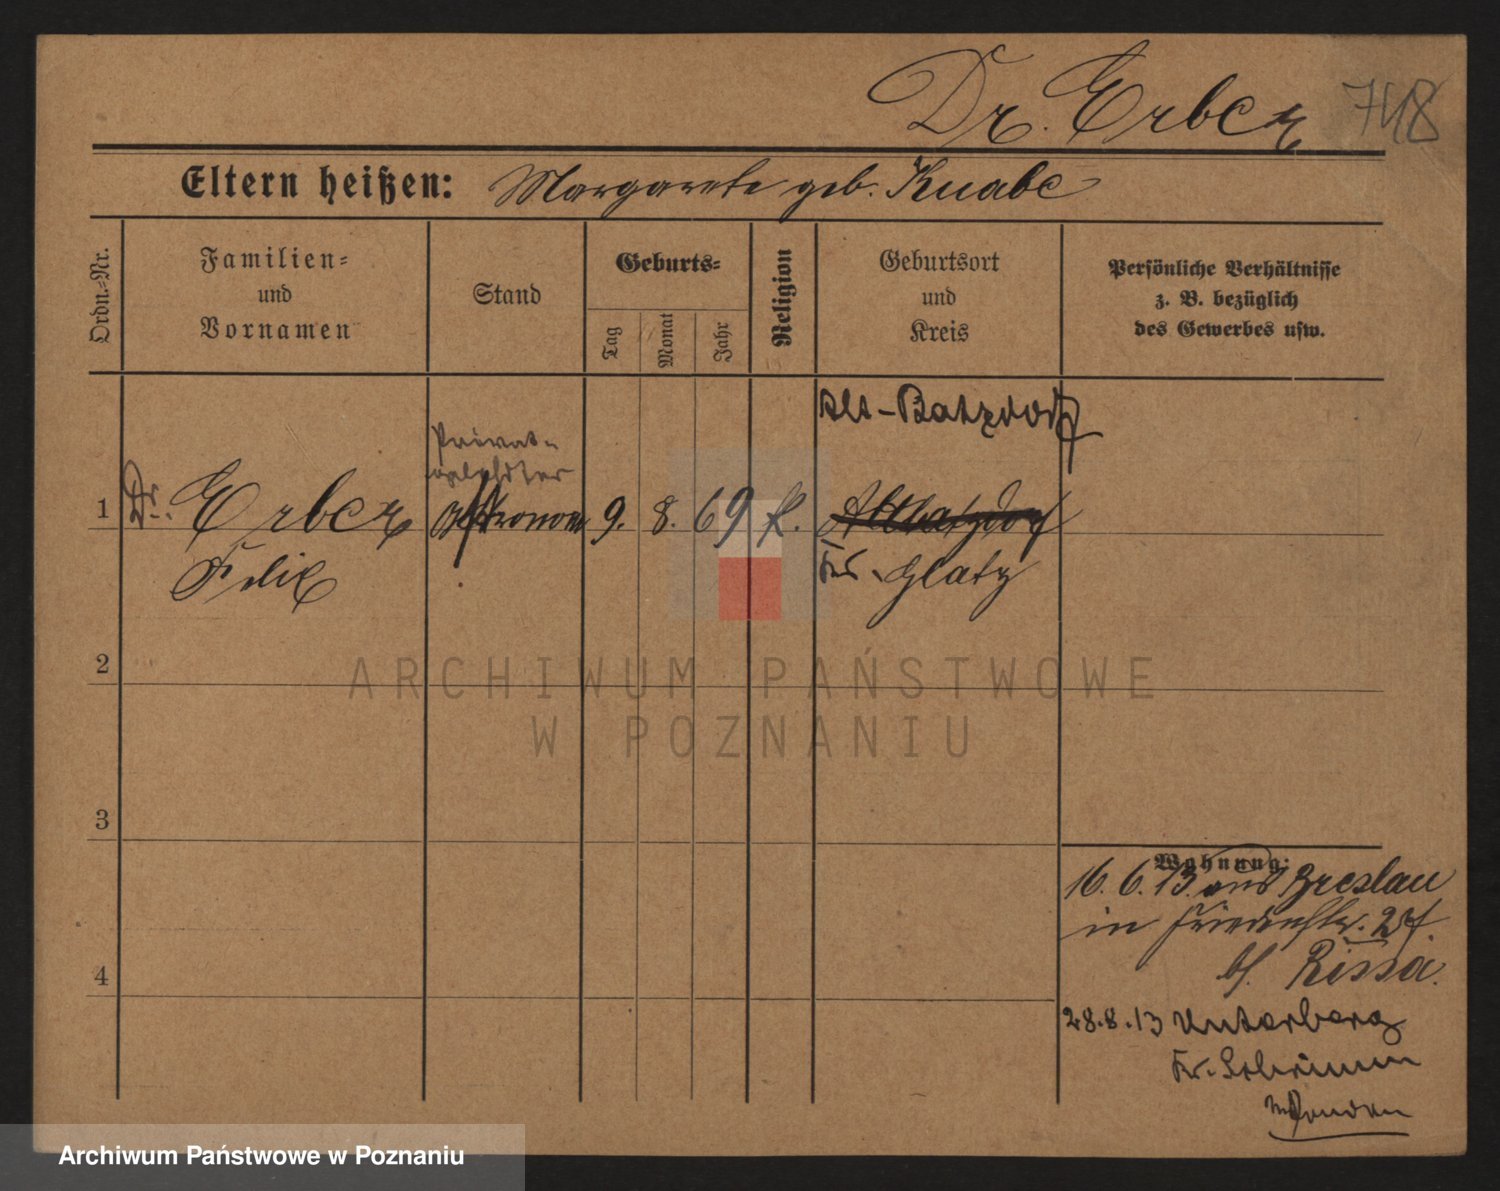 Dr. Erber 748
Eltern heißen: Margarete geb. Knabe
Ordn.-Nr.
Familien-
und
Vornamen
Stand
Geburts-
Tag
Monat
Jahr
Religion
Geburtsort
und
Kreis
Persönliche Verhältnisse
z. B. bezüglich
des Gewerbes usw.
Alt-Batzdorf
Privat-
1 Dr. Erber Astronom 9. 8. 69 k. Altbatzdorf
Felix Kr. Glatz
2
ARCHIWUM PAŃSTWOWE
W POZNANIU
3
Wohnung:
16. 6. 13. aus Breslau
in
bf. Rissa.
4
28.8.13 Unterberg
Kr. Schrimm
Archiwum Państwowe w Poznaniu